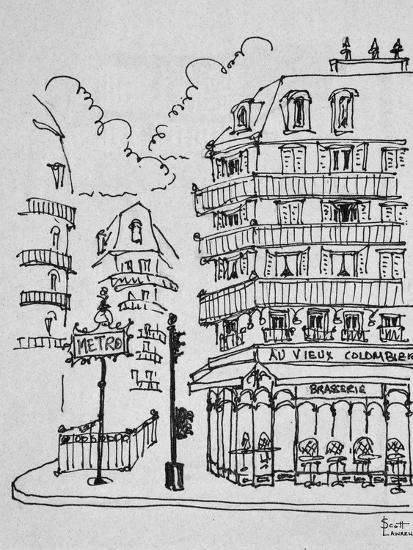 METRO
AU VIEUX COLOMBIER
BRASSERIE
Scott
LAWREN